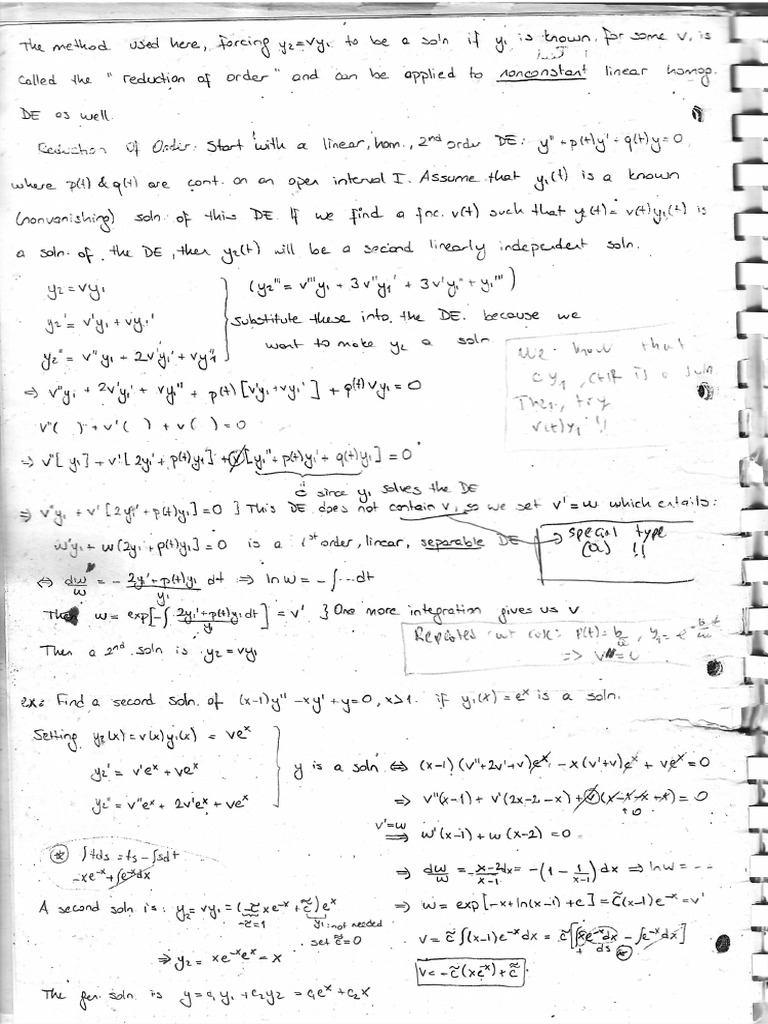 The method used here, forcing y2=vy1 to be a soln if y1 is known, for some v, is
called the "reduction of order" and can be applied to nonconstant linear homog.
DE as well.
Reduction Of Order: Start with a linear, hom., 2nd order DE: y''+p(t)y'+q(t)y=0,
where p(t) & q(t) are cont. on an open interval I. Assume that y1(t) is a known
(nonvanishing) soln. of this DE. If we find a fnc. v(t) such that y2(t)=v(t)y1(t) is
a soln. of the DE, then y2(t) will be a second linearly independent soln.
y2=vy1
y2'=v'y1+vy1'
y2''=v''y1+2v'y1'+vy1''
(y2'''=v'''y1+3v''y1'+3v'y1''+y1''')
substitute these into the DE because we
want to make y2 a soln
We know that
cy1, c∈R is a soln
Then, try
v(t)y1 !!
⇒ v''y1+2v'y1'+vy1''+p(t)[v'y1+vy1']+q(t)vy1=0
v''( )+v'( )+v( )=0
⇒ v''[y1]+v'[2y1'+p(t)y1]+v[y1''+p(t)y1'+q(t)y1]=0
since y1 solves the DE
⇒ v''y1+v'[2y1'+p(t)y1]=0 } This DE does not contain v, so we set v'=w which entails:
w'y1+w(2y1'+p(t)y1)=0 is a 1st order, linear, separable DE
→ special type
(a) !!
⇔ dw/w = - (2y1'+p(t)y1)/y1 dt ⇒ ln w = -∫...dt
Then w=exp[-∫ (2y1'+p(t)y1)/y1 dt] = v' } One more integration gives us v
Then a 2nd soln is y2=vy1
Repeated root case:
Ex: Find a second soln. of (x-1)y''-xy'+y=0, x>1. if y1(x)=e^x is a soln.
Setting y2(x)=v(x)y1(x) = ve^x
y2'=v'e^x+ve^x
y2''=v''e^x+2v'e^x+ve^x
y is a soln ⇔ (x-1)(v''+2v'+v)e^x-x(v'+v)e^x+ve^x=0
⇒ v''(x-1)+v'(2x-2-x)+v(x-x-x+x)=0
v'=w
⇒ w'(x-1)+w(x-2)=0
⇒ dw/w = -(x-2)/(x-1) dx = -(1-1/(x-1))dx ⇒ ln w = --
⇒ w=exp[-x+ln(x-1)+c]=c̃(x-1)e^-x=v'
v=c̃∫(x-1)e^-x dx = c̃[∫xe^-x dx-∫e^-x dx]
t ds ⊛
v=-c̃(xe^-x)+c̃̃
⊛ ∫tds=ts-∫sdt
-xe^-x+∫e^-x dx
A second soln is: y2=vy1=(-c̃xe^-x+c̃̃)e^x
-c̃=1
y1: not needed
set c̃̃=0
⇒ y2=xe^-xe^x=x
The gen. soln is y=c1y1+c2y2=c1e^x+c2x